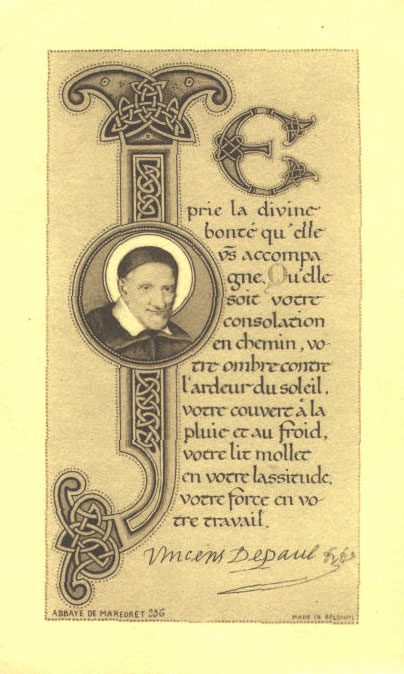 JE
prie la divine
bonté qu'elle
vs̃ accompa
gne. Qu'elle
soit votre
consolation
en chemin, vo-
tre ombre contre
l'ardeur du soleil,
votre couvert à la
pluie et au froid,
votre lit mollet
en votre lassitude,
votre force en vo-
tre travail.
Vincens Depaul
ABBAYE DE MAREDRET 236
MADE IN BELGIUM